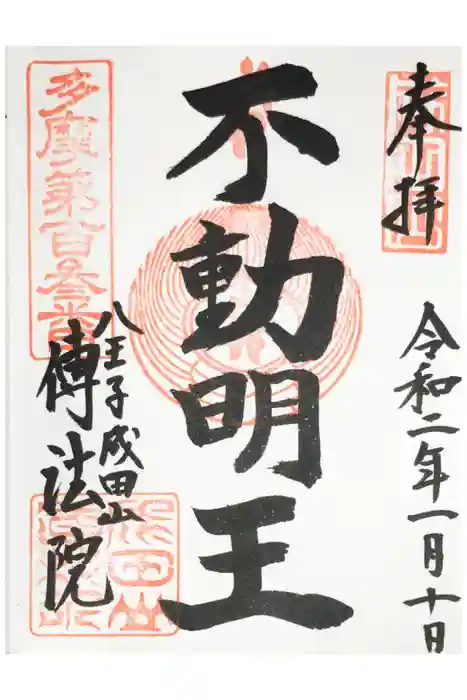 奉拝
令和二年一月十日
不動明王
多摩第百叁番
八王子成田山
傳法院